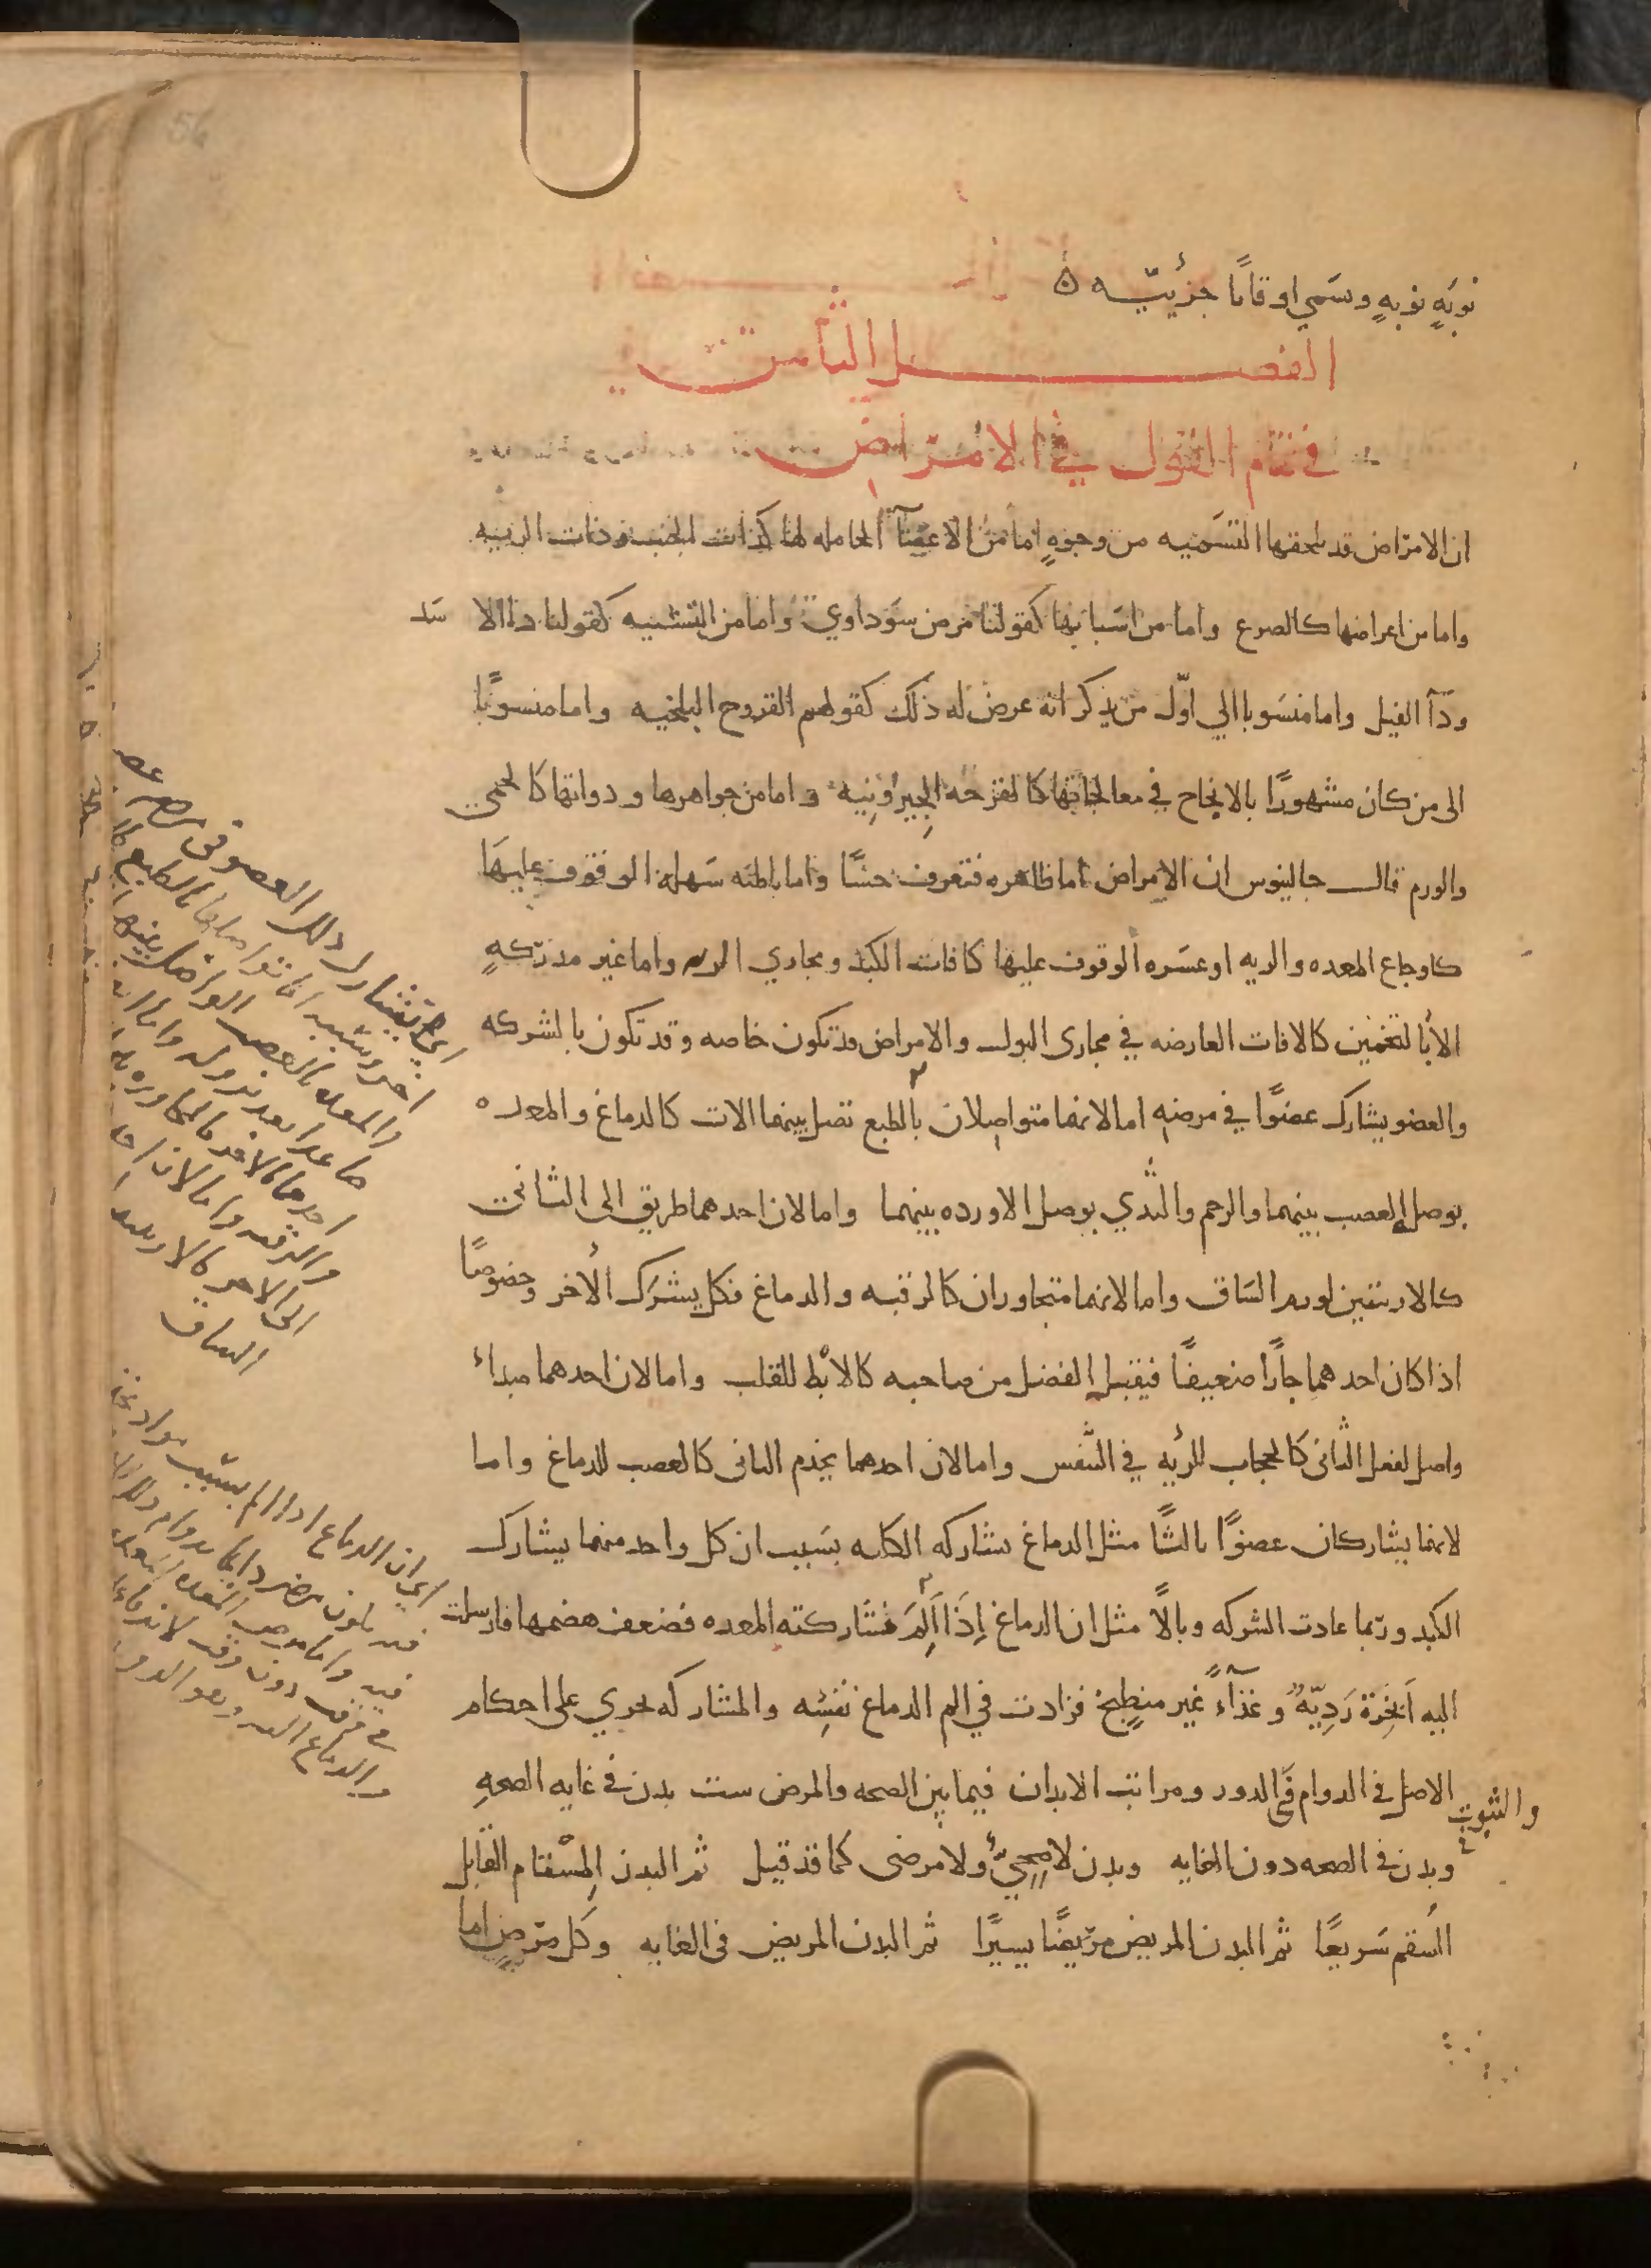 نوبَهٍ نوبهٍ وسَمي اوقاتًا جزئيّيه ه
الفصـــــــل الثامن
في تمام القول في الامرَاض
ان الامراض قد يلحقها التسَميه من وجوهٍ اما من الاعضآ الحامله لها كذات الجنب وذات الرييه
واما من اعراضها كالصرع واما من اسَبابها كقولنا مرض سَوداوي واما من التشبيه كقولنا دا الاسَد
ودَآ الفيل واما منسَوبا الي اوّل من يذكر انه عرض له ذلك كقولهم القروح البلخيه واما منسوبًا
الى من كان مشهورًا بالانجاح في معالجاتها كالقرحه الجِيرُونِيه واما من جواهرها ودواتها كالحمى
والورم قال جالينوس ان الامراض اما ظاهره فتعرف حسًّا واما باطنه سَهله الوقوف عليهَا
كاوجاع المعده والريه او عسَره الوقوف عليها كافات الكبد ومجاري الريه واما غير مدرَكهٍ
الا بالتخمين كالافات العارضه في مجارى البول والامراض قد تكون خاصه وقد تكون بالشركه
والعضو يشارك عضوًا في مرضهِ اما لانهما متواصلان بالطبع تصل بينهما الات كالدماغ والمعده
يوصل العصب بينهما والرحم والثدي يوصل الاورده بينهما واما لان احدهما طريق الى الثانى
كالاربتين لورم السَاق واما لانهما متجاوران كالرقبه والدماغ فكل يشرَك الأخر وخصوصًا
اذا كان احدهما جارًا ضعيفًا فيقبل الفضل من صاحبه كالابْط للقلب واما لان احدهما مبداء
واصل لفعل الثانى كالحجاب للرئيه في النَّفس واما لان احدهما يخدم الثانى كالعصب للدماغ واما
لانهما يشاركان عضوًا ثالثًا مثل الدماغ يشاركه الكليه بسَبب ان كل واحد منهما يشارك
الكبد وربّما عادت الشركه وبالاً مثل ان الدماغ اِذَا اَلِمَ فشاركته المعده فضعف هضمها فارسلت
اليه اَبخِرَة رَدِيّهً وغذآءً غير منطبخ فزادت في الم الدماغ نفسِه والمشاركه تجري على احكام
الاصل في الدوام فى الدور ومراتب الابدان فيما بين الصحه والمرض ست بدن في غايه الصحهِ
والثبوت
وبدن في الصحه دون الغايه وبدن لا صِحِيّ ولا مرضى كما قد قيل ثم البدن المِسْقام القابل
السُقم سَريعًا ثم البدن المريض مرَيضًا يسيرًا ثم البدن المريض في الغايه وكل مرَضٍ اما
اي تشارك ذلك العضو في مرضه
والمعده بالعصب الواصل بينهما
والرقبه واما لان احد
الى الاخر كالاربتين
الساق
اي ان الدماغ اذا الم بسَبب مواد